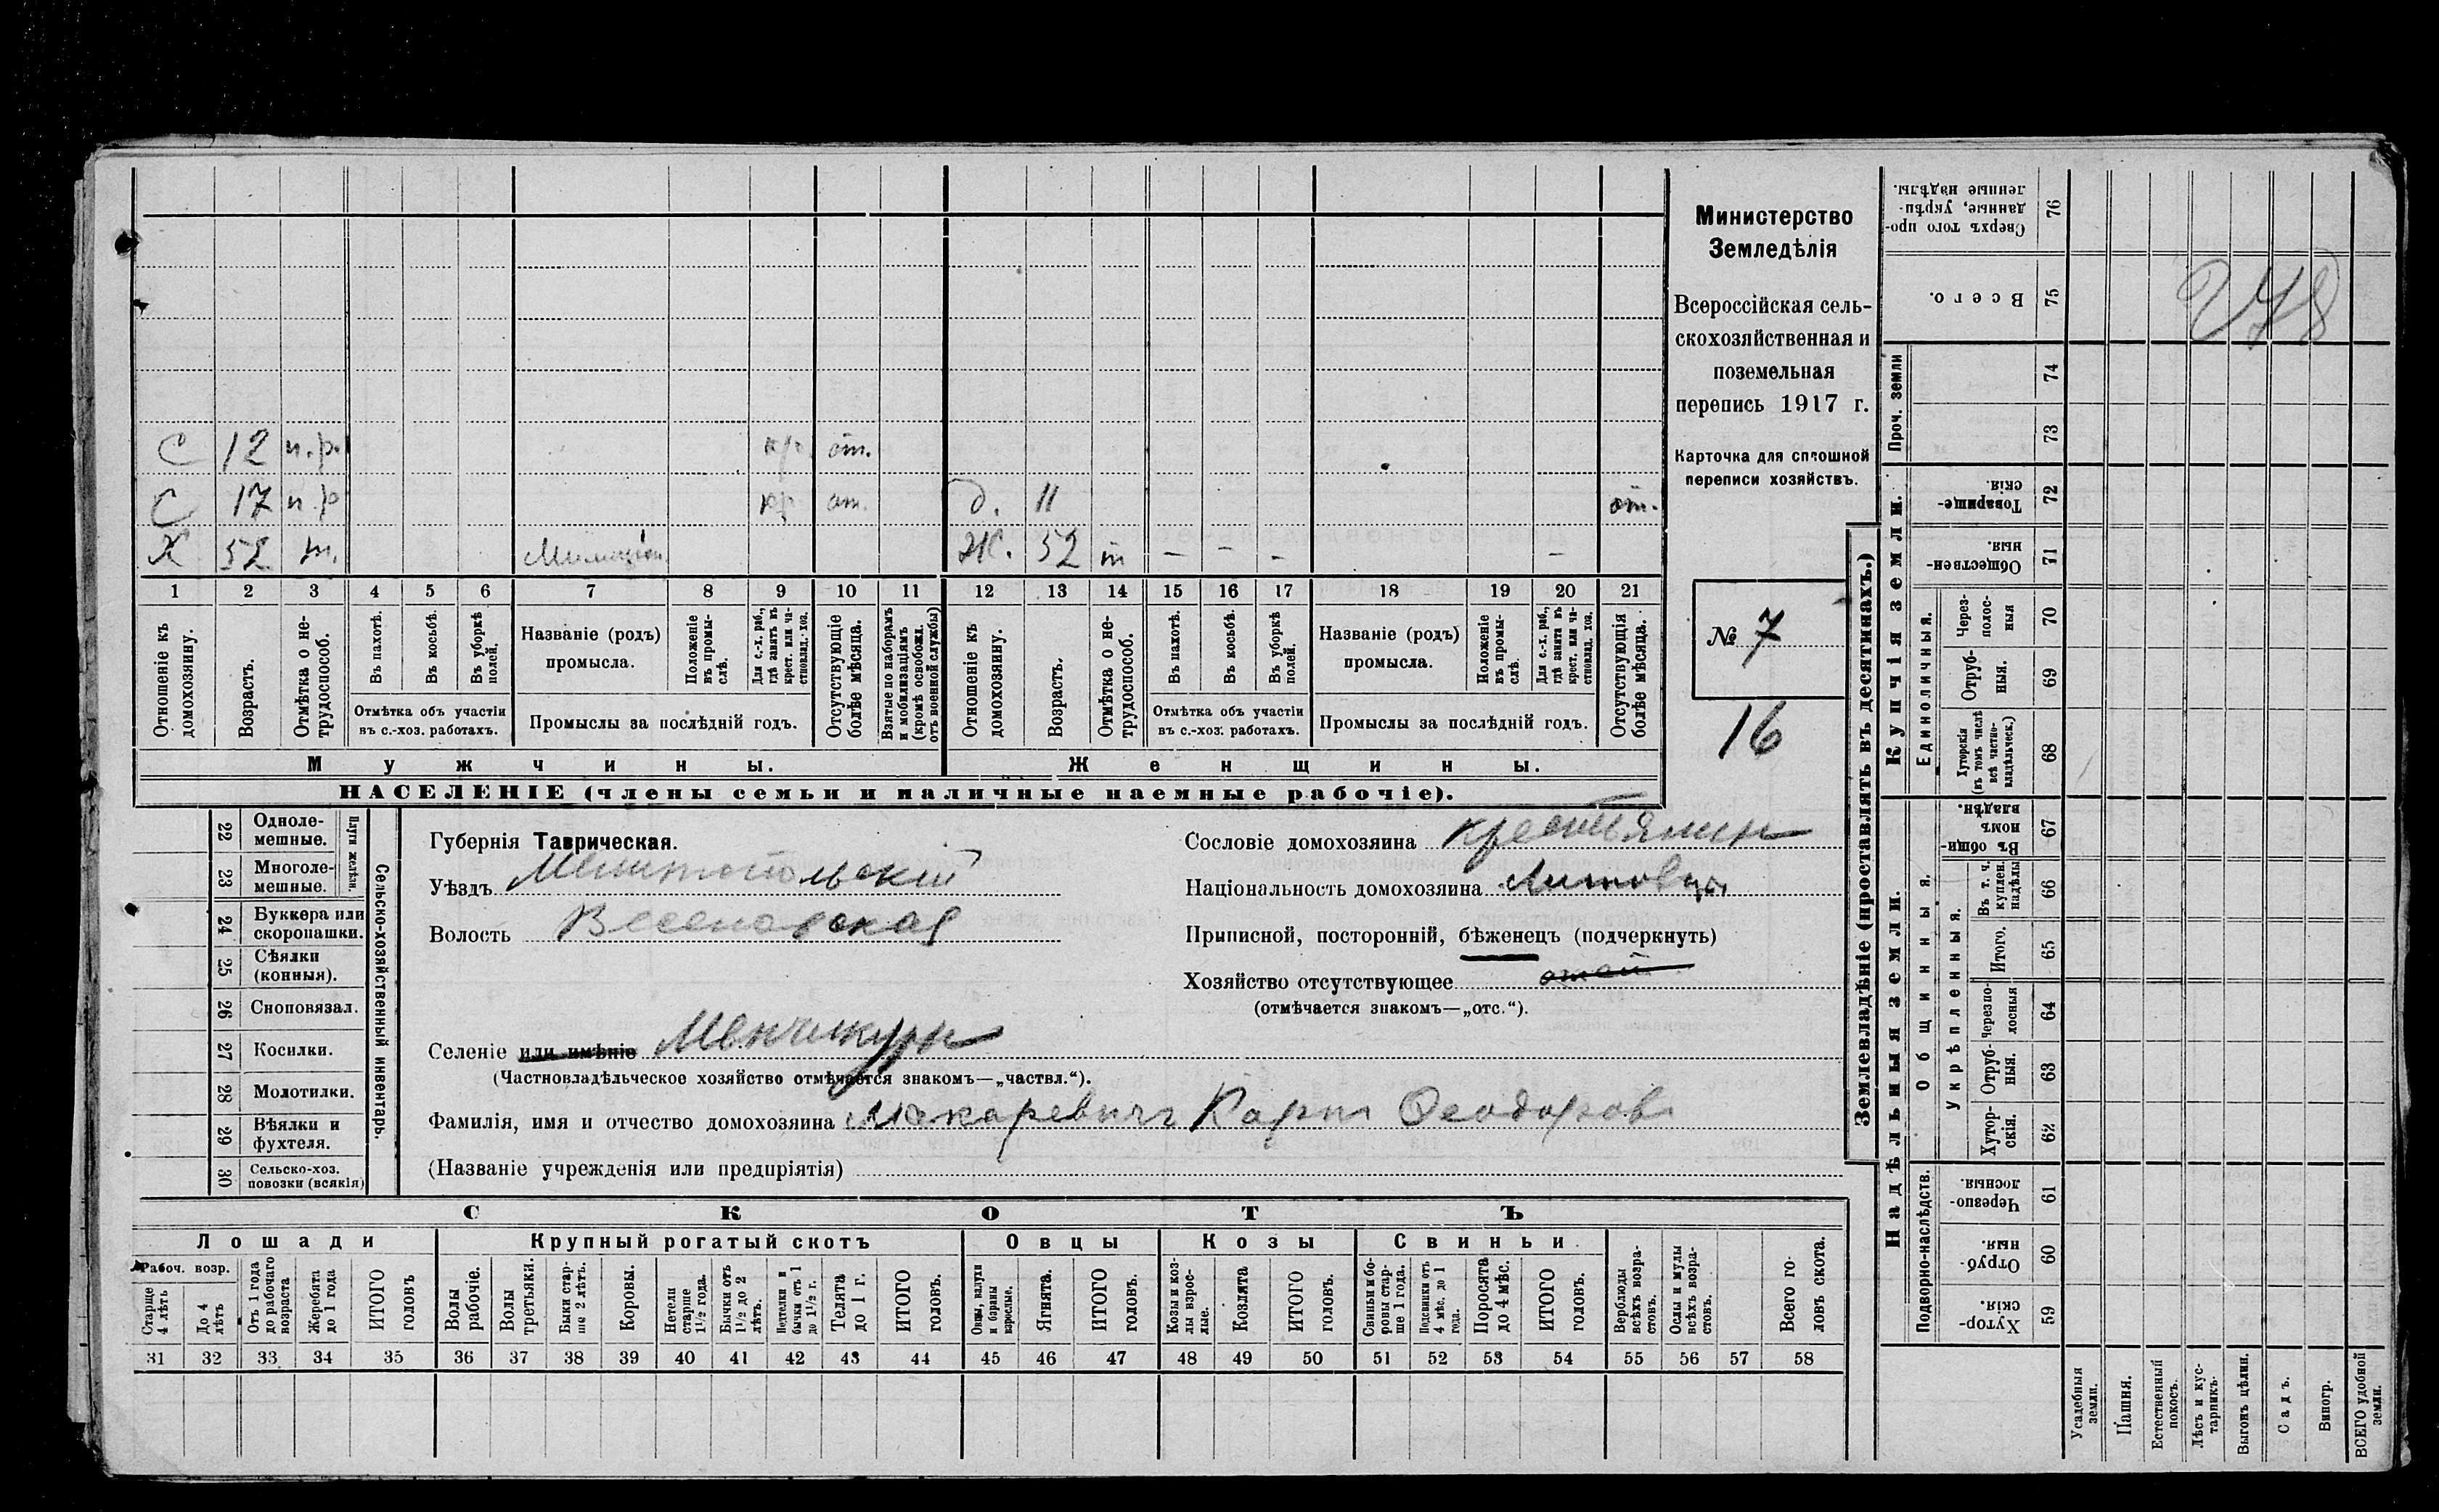 С 12 п.р. кр. от.
С 17 п.р кр от. д. 11 от.
Х 52 т. Ж. 52 т – – – –
1 2 3 4 5 6 7 8 9 10 11 12 13 14 15 16 17 18 19 20 21
Отношеніе къ домохозяину.
Возрастъ.
Отмѣтка о не-
трудоспособ.
Въ пахотѣ.
Въ косьбѣ.
Въ уборкѣ
полей.
Отмѣтка объ участіи
въ с.-хоз. работахъ.
Названіе (родъ)
промысла.
Положеніе
въ промы-
слѣ.
Для с.-х. раб.,
гдѣ занятъ въ
крест. или ча-
стновлад. хоз.
Промыслы за послѣдній годъ.
Отсутствующіе
болѣе мѣсяца.
Взятые по наборамъ
и мобилизаціямъ
(кромѣ освобожд.
отъ военной службы)
Отношеніе къ
домохозяину.
Возрастъ.
Отмѣтка о не-
трудоспособ.
Въ пахотѣ.
Въ косьбѣ.
Въ уборкѣ
полей.
Отмѣтка объ участіи
въ с.-хоз. работахъ.
Названіе (родъ)
промысла.
Положеніе
въ промы-
слѣ.
Для с.-х. раб.,
гдѣ занята въ
крест. или ча-
стновлад. хоз.
Промыслы за послѣдній годъ.
Отсутствующія
болѣе мѣсяца.
Мужчины. Женщины.
НАСЕЛЕНІЕ (члены семьи и наличные наемные рабочіе).
Министерство
Земледѣлія
Всероссійская сель-
скохозяйственная и
поземельная
перепись 1917 г.
Карточка для сплошной
переписи хозяйствъ.
№ 7
16
22 Одноле-
мешные.
23 Многоле-
мешные.
Плуги желѣзн.
24 Буккера или
скоропашки.
25 Сѣялки
(конныя).
26 Сноповязал.
27 Косилки.
28 Молотилки.
29 Вѣялки и
фухтеля.
30 Сельско-хоз.
повозки (всякія)
Сельско-хозяйственный инвентарь.
Губернія Таврическая.
Уѣздъ Мелитопольскій
Волость Веселовская
Селеніе или имѣніе Менчикуры
(Частновладѣльческое хозяйство отмѣчается знакомъ—„частвл.“).
Фамилія, имя и отчество домохозяина Макаревичъ Карпъ Ѳеодоровъ
(Названіе учрежденія или предпріятія)
Сословіе домохозяина крестьянин
Національность домохозяина Литовцы
Приписной, посторонній, бѣженецъ (подчеркнуть)
Хозяйство отсутствующее
(отмѣчается знакомъ—„отс.“).
СКОТЪ
Лошади Крупный рогатый скотъ Овцы Козы Свиньи.
Рабоч. возр.
Старше
4 лѣтъ
До 4
лѣтъ
Отъ 1 года
до рабочаго
возраста
Жеребята
до 1 года
ИТОГО
головъ
Волы
рабочіе.
Волы
третьяки.
Быки стар-
ше 2 лѣтъ.
Коровы.
Нетели
старше
1½ года.
Бычки отъ
1½ до 2
лѣтъ.
Нетелки и
бычки отъ 1
до 1½ г.
Телята
до 1 г.
ИТОГО
головъ.
Овцы, валухи
и бараны
взрослые.
Ягнята.
ИТОГО
головъ.
Козы и коз-
лы взрос-
лые.
Козлята
ИТОГО
головъ.
Свиньи и бо-
ровы стар-
ше 1 года.
Подсвинки отъ
4 мѣс. до 1
года.
Поросята
до 4 мѣс.
ИТОГО
головъ.
Верблюды
всѣхъ возра-
стовъ.
Ослы и мулы
всѣхъ возра-
стовъ.
Всего го-
ловъ скота.
31 32 33 34 35 36 37 38 39 40 41 42 43 44 45 46 47 48 49 50 51 52 53 54 55 56 57 58
Землевладѣніе (проставлять въ десятинахъ.)
Надѣльныя земли. Купчія земли. Проч. земли
Подворно-наслѣдств.
Общинныя.
Укрѣпленныя.
Единоличныя.
Сверхъ того про-
данные, укрѣп-
ленные надѣлы.
76
Всего.
75
74
73
Товарище-
скія.
72
Обществен-
ныя.
71
Через-
полос-
ныя
70
Отруб-
ныя.
69
Хуторскія
(въ томъ числѣ
всѣ частно-
владѣльческ.)
68
Въ общин-
номъ
владѣн.
67
Въ т. ч.
куплен.
надѣлы
66
Итого.
65
Черезпо-
лосныя
64
Отруб-
ныя.
63
Хутор-
скія.
62
Черезпо-
лосныя.
61
Отруб-
ныя.
60
Хутор-
скія.
59
Усадебныя
земли.
Пашня.
Естественный
покосъ.
Лѣсъ и кус-
тарникъ.
Выгонъ цѣлин.
Садъ.
Виногр.
ВСЕГО удобной
земли.
278